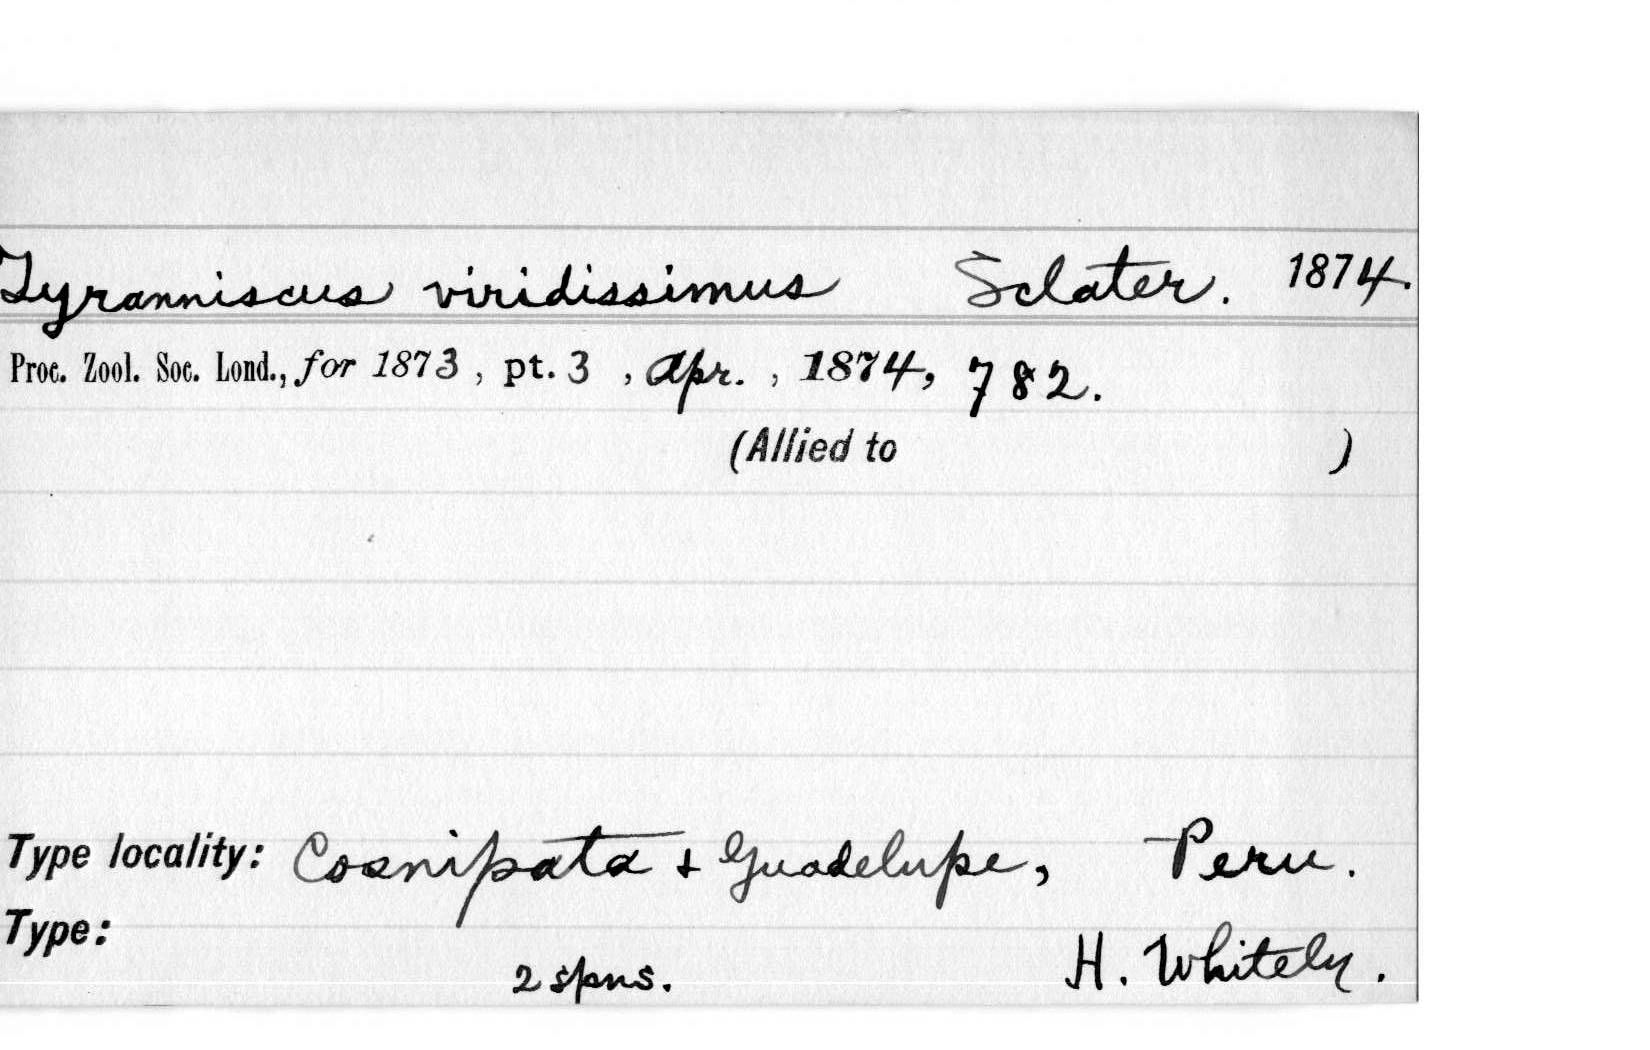 Tyranniscus viridissimus Sclater. 1874.
Proc. Zool. Soc. Lond., for 1873, pt. 3, Apr., 1874, 782.
(Allied to )
Type locality: Cosnipata + Guadelupe, Peru.
Type:
2 spns. H. Whitely.